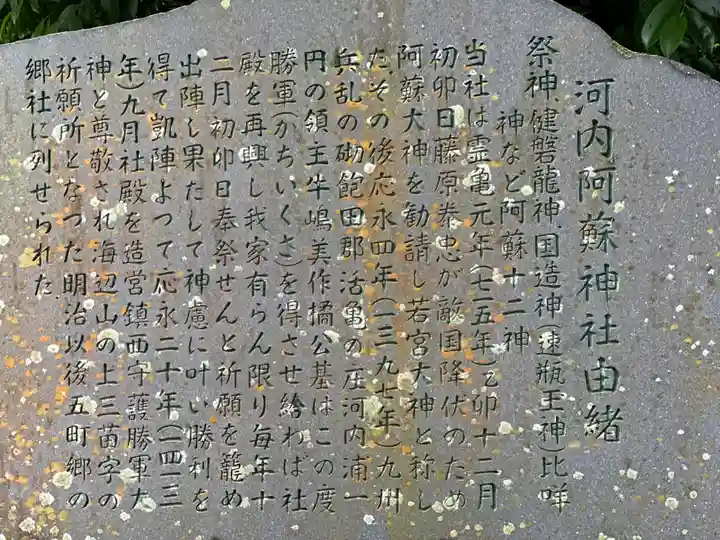 河内阿蘇神社由緒
祭神、健磐龍神、国造神(速瓶玉神)比咩
神など阿蘇十二神
当社は霊亀元年(七一五年)乙卯十二月
初卯日藤原泰忠が敵国降伏のため
阿蘇大神を勧請し若宮大神と称し
た、その後応永四年(一三九七年)九州
兵乱の砌飽田郡活亀の庄河内浦一
円の領主牛嶋美作橘公基はこの度
勝軍(かちいくさ)を得させ給わば社
殿を再興し我家有らん限り毎年十
二月初卯日奉祭せんと祈願を籠め
出陣し果たして神慮に叶い勝利を
得て凱陣よつて応永二十年(一四一三
年)九月社殿を造営鎮西守護勝軍大
神と尊敬され海辺山の上三苗字の
祈願所となつた明治以後五町郷の
郷社に列せられた